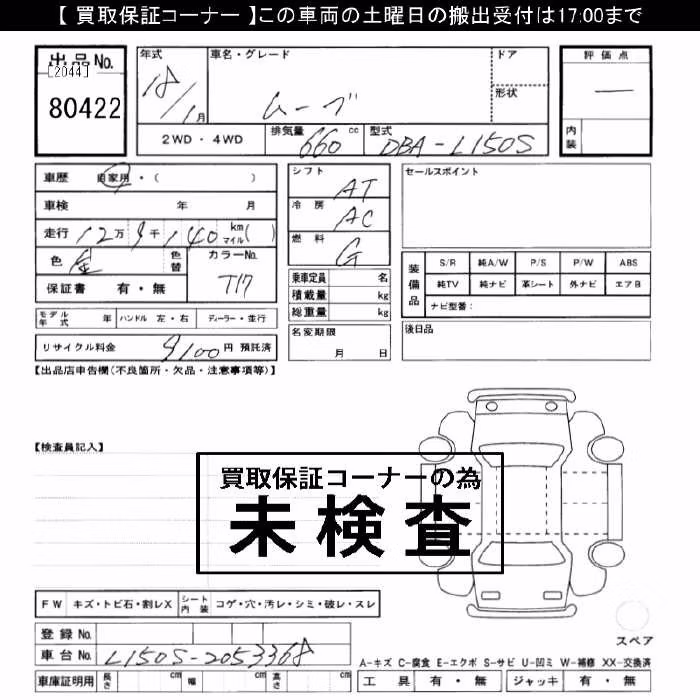 【 買取保証コーナー 】この車両の土曜日の搬出受付は17:00まで
出品No.
[2044]
80422
年式
18/1月
車名・グレード
ムーブ
ドア
形状
評価点
―
内装
2WD・4WD
排気量 660 cc
型式 DBA-L150S
車歴 自家用・( )
車検 年 月
走行 12万9千140 km マイル( )
色 金 色替
カラーNo. T17
保証書 有・無
シフト AT
冷房 AC
燃料 G
セールスポイント
装備品
S/R 純A/W P/S P/W ABS
純TV 純ナビ 革シート 外ナビ エアB
ナビ型番:
乗車定員 名
積載量 kg
総重量 kg
モデル年式 年 ハンドル 左・右 ディーラー・並行
名変期限
月 日
後日品
リサイクル料金 9100円 預託済
【出品店申告欄(不良箇所・欠品・注意事項等)】
【検査員記入】
買取保証コーナーの為
未検査
FW キズ・トビ石・割レX
シート内装 コゲ・穴・汚レ・シミ・破レ・スレ
スペア
登録No.
車台No. L150S-2053368
A-キズ C-腐食 E-エクボ S-サビ U-凹ミ W-補修 XX-交換済
車庫証明用 長さ cm 幅 cm 高さ cm
工具 有・無 ジャッキ 有・無